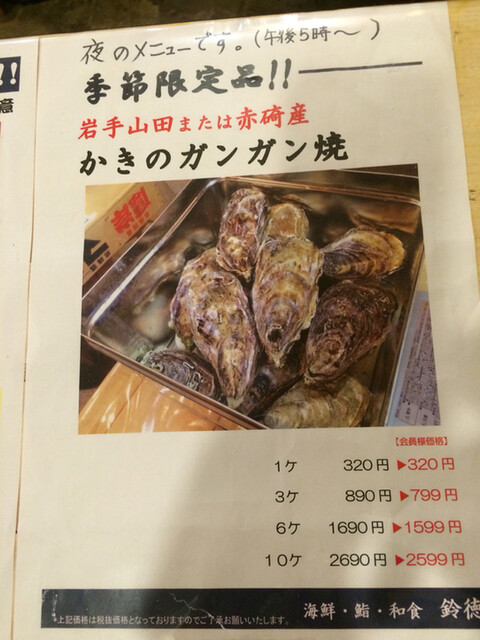 夜のメニューです。(午後5時〜)
季節限定品!!
岩手山田または赤碕産
かきのガンガン焼
【会員様価格】
1ケ 320円 ▶320円
3ケ 890円 ▶799円
6ケ 1690円 ▶1599円
10ケ 2690円 ▶2599円
上記価格は税抜価格となっておりますのでご了承お願いいたします。
海鮮・鮨・和食 鈴徳